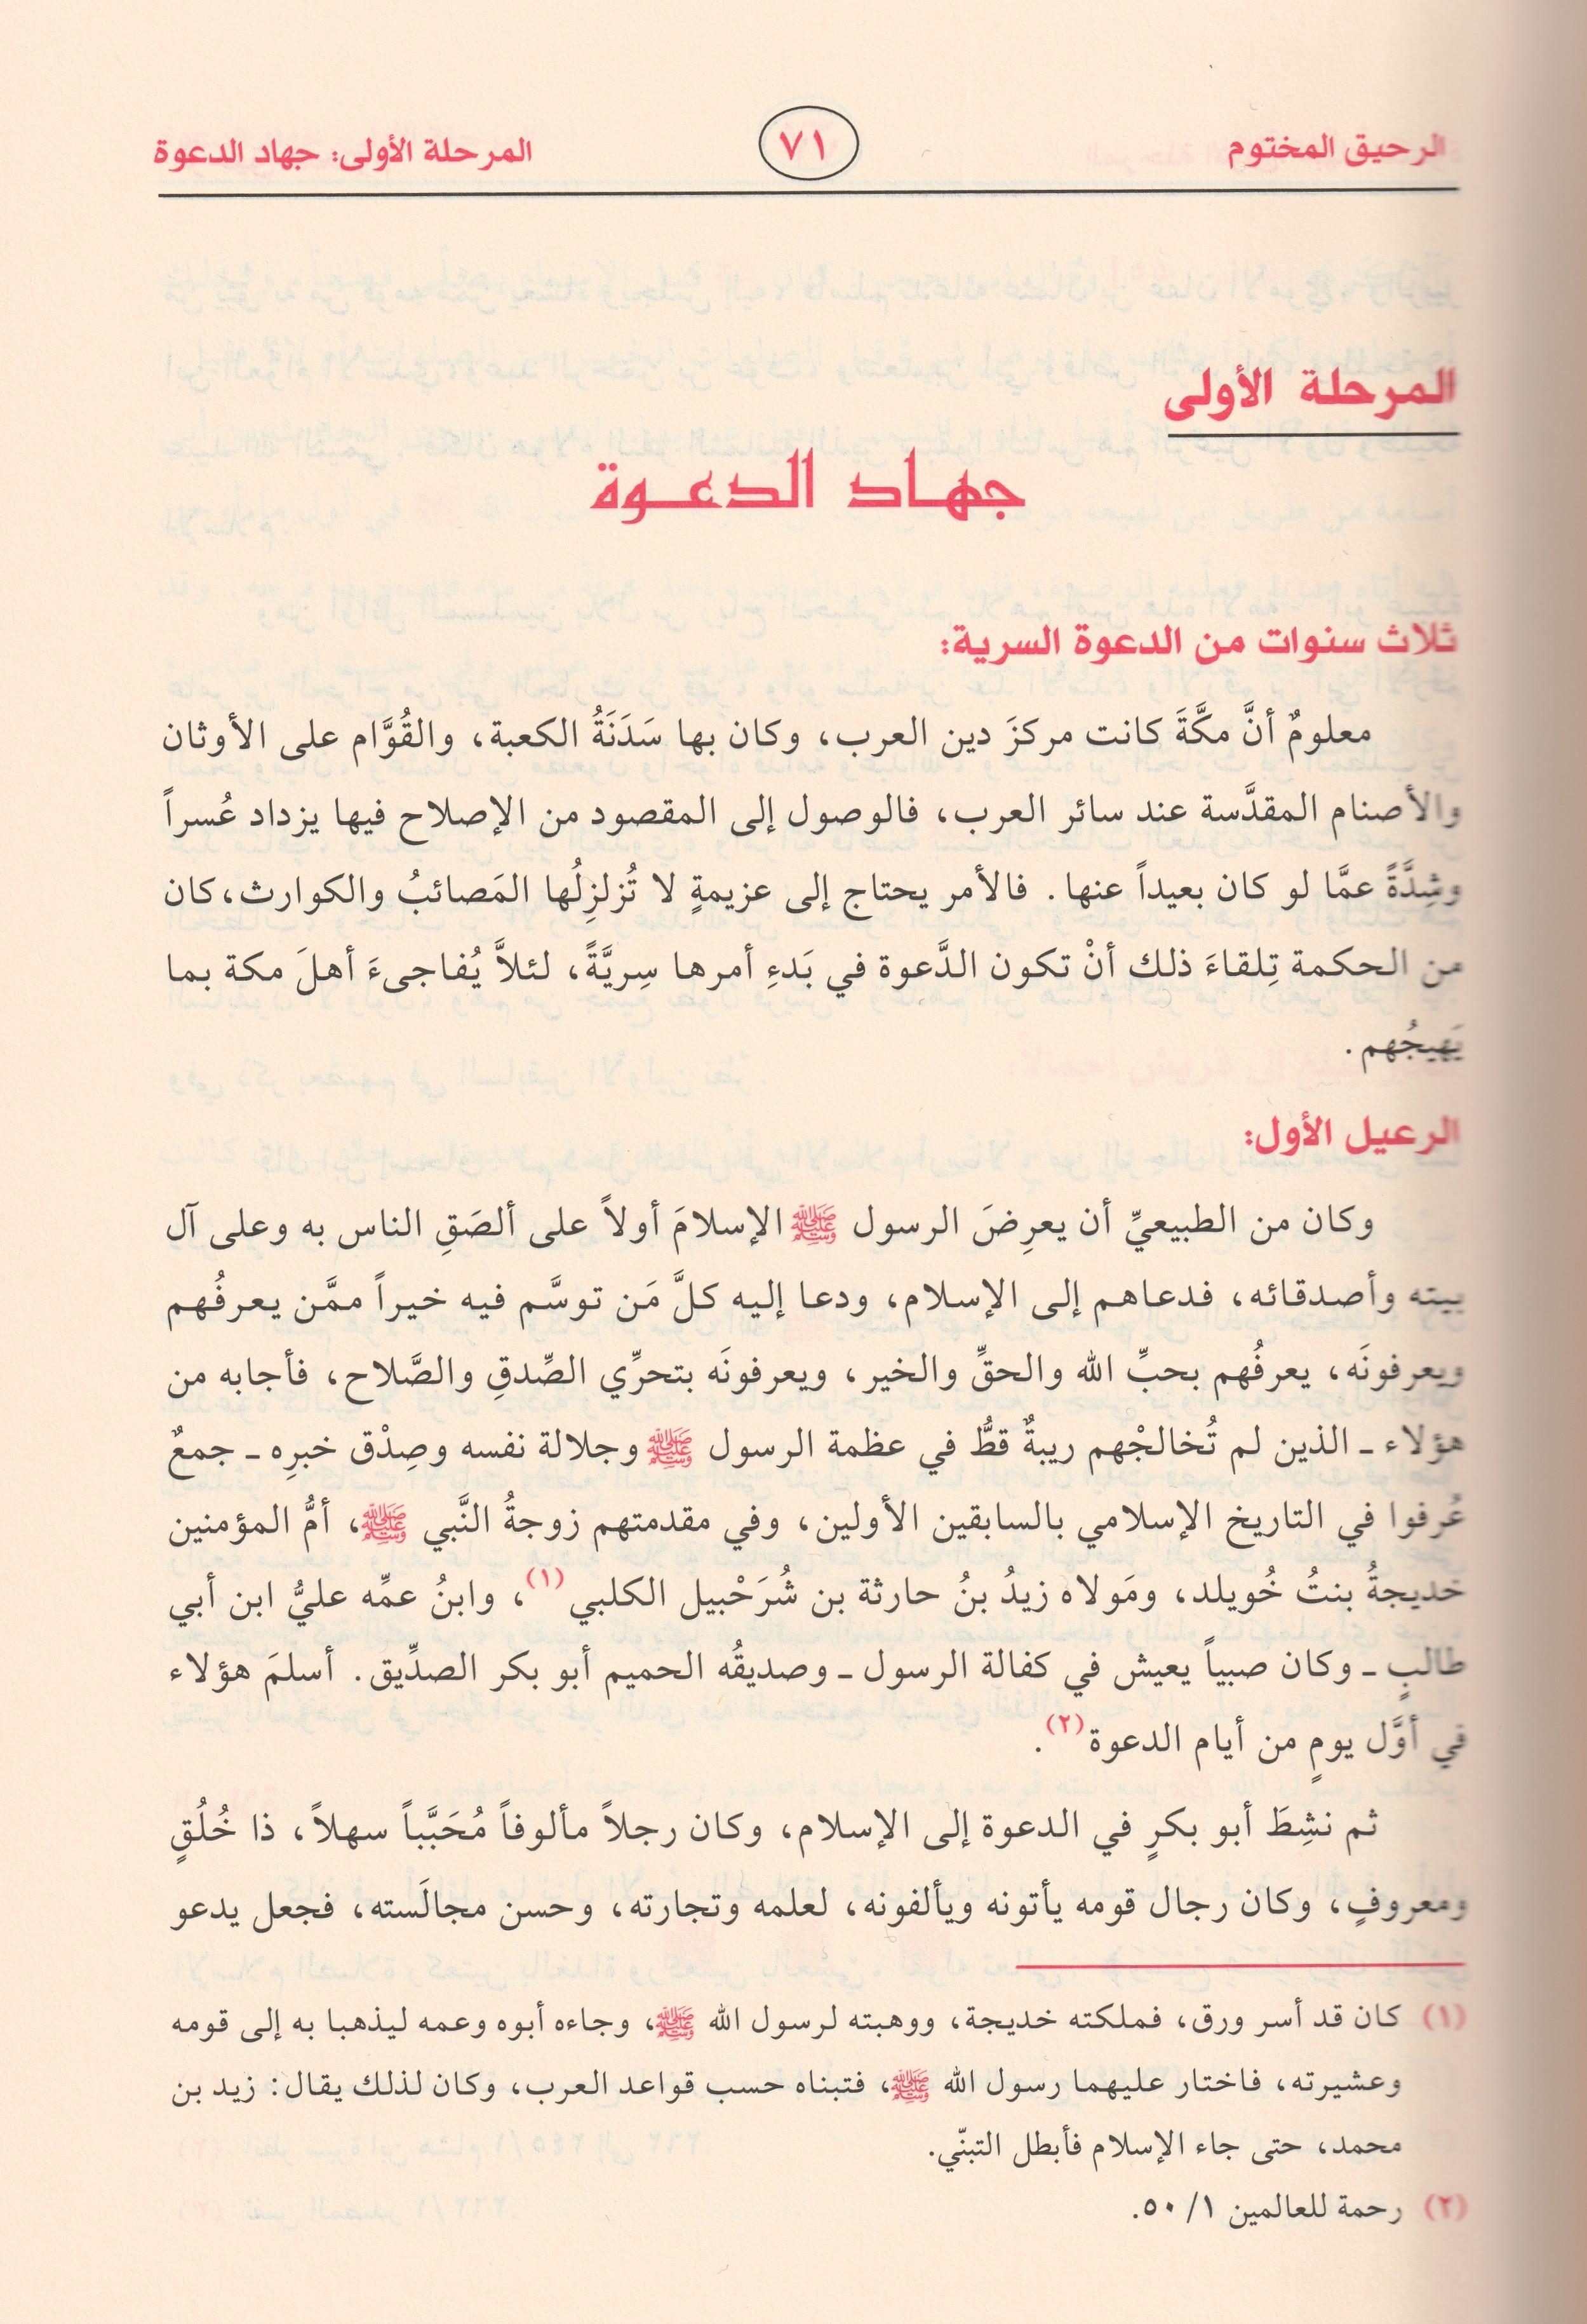 الرحيق المختوم
٧١
المرحلة الأولى: جهاد الدعوة
المرحلة الأولى
جهاد الدعوة
ثلاث سنوات من الدعوة السرية:
معلومٌ أنَّ مكَّةَ كانت مركزَ دين العرب، وكان بها سَدَنَةُ الكعبة، والقُوَّام على الأوثان
والأصنام المقدَّسة عند سائر العرب، فالوصول إلى المقصود من الإصلاح فيها يزداد عُسراً
وشِدَّةً عمَّا لو كان بعيداً عنها. فالأمر يحتاج إلى عزيمةٍ لا تُزلزِلُها المَصائبُ والكوارث،كان
من الحكمة تِلقاءَ ذلك أنْ تكون الدَّعوة في بَدءِ أمرها سِريَّةً، لئلاَّ يُفاجىءَ أهلَ مكة بما
يَهيجُهم.
الرعيل الأول:
وكان من الطبيعيِّ أن يعرِضَ الرسول ﷺ الإسلامَ أولاً على ألصَقِ الناس به وعلى آل
بيته وأصدقائه، فدعاهم إلى الإسلام، ودعا إليه كلَّ مَن توسَّم فيه خيراً ممَّن يعرفُهم
ويعرفونَه، يعرفُهم بحبِّ الله والحقِّ والخير، ويعرفونَه بتحرِّي الصِّدقِ والصَّلاح، فأجابه من
هؤلاء ـ الذين لم تُخالجْهم ريبةٌ قطُّ في عظمة الرسول ﷺ وجلالة نفسه وصِدْق خبرِه ـ جمعٌ
عُرفوا في التاريخ الإسلامي بالسابقين الأولين، وفي مقدمتهم زوجةُ النَّبي ﷺ، أمُّ المؤمنين
خديجةُ بنتُ خُويلد، ومَولاه زيدُ بنُ حارثة بن شُرَحْبيل الكلبي(١)، وابنُ عمِّه عليُّ ابن أبي
طالبٍ ـ وكان صبياً يعيش في كفالة الرسول ـ وصديقُه الحميم أبو بكر الصدِّيق. أسلمَ هؤلاء
في أوَّل يومٍ من أيام الدعوة(٢).
ثم نشِطَ أبو بكرٍ في الدعوة إلى الإسلام، وكان رجلاً مألوفاً مُحَبَّباً سهلاً، ذا خُلُقٍ
ومعروفٍ، وكان رجال قومه يأتونه ويألفونه، لعلمه وتجارته، وحسن مجالَسته، فجعل يدعو
(١) كان قد أسر ورق، فملكته خديجة، ووهبته لرسول الله ﷺ، وجاءه أبوه وعمه ليذهبا به إلى قومه
وعشيرته، فاختار عليهما رسول الله ﷺ، فتبناه حسب قواعد العرب، وكان لذلك يقال: زيد بن
محمد، حتى جاء الإسلام فأبطل التبنّي.
(٢) رحمة للعالمين ١/ ٥٠.